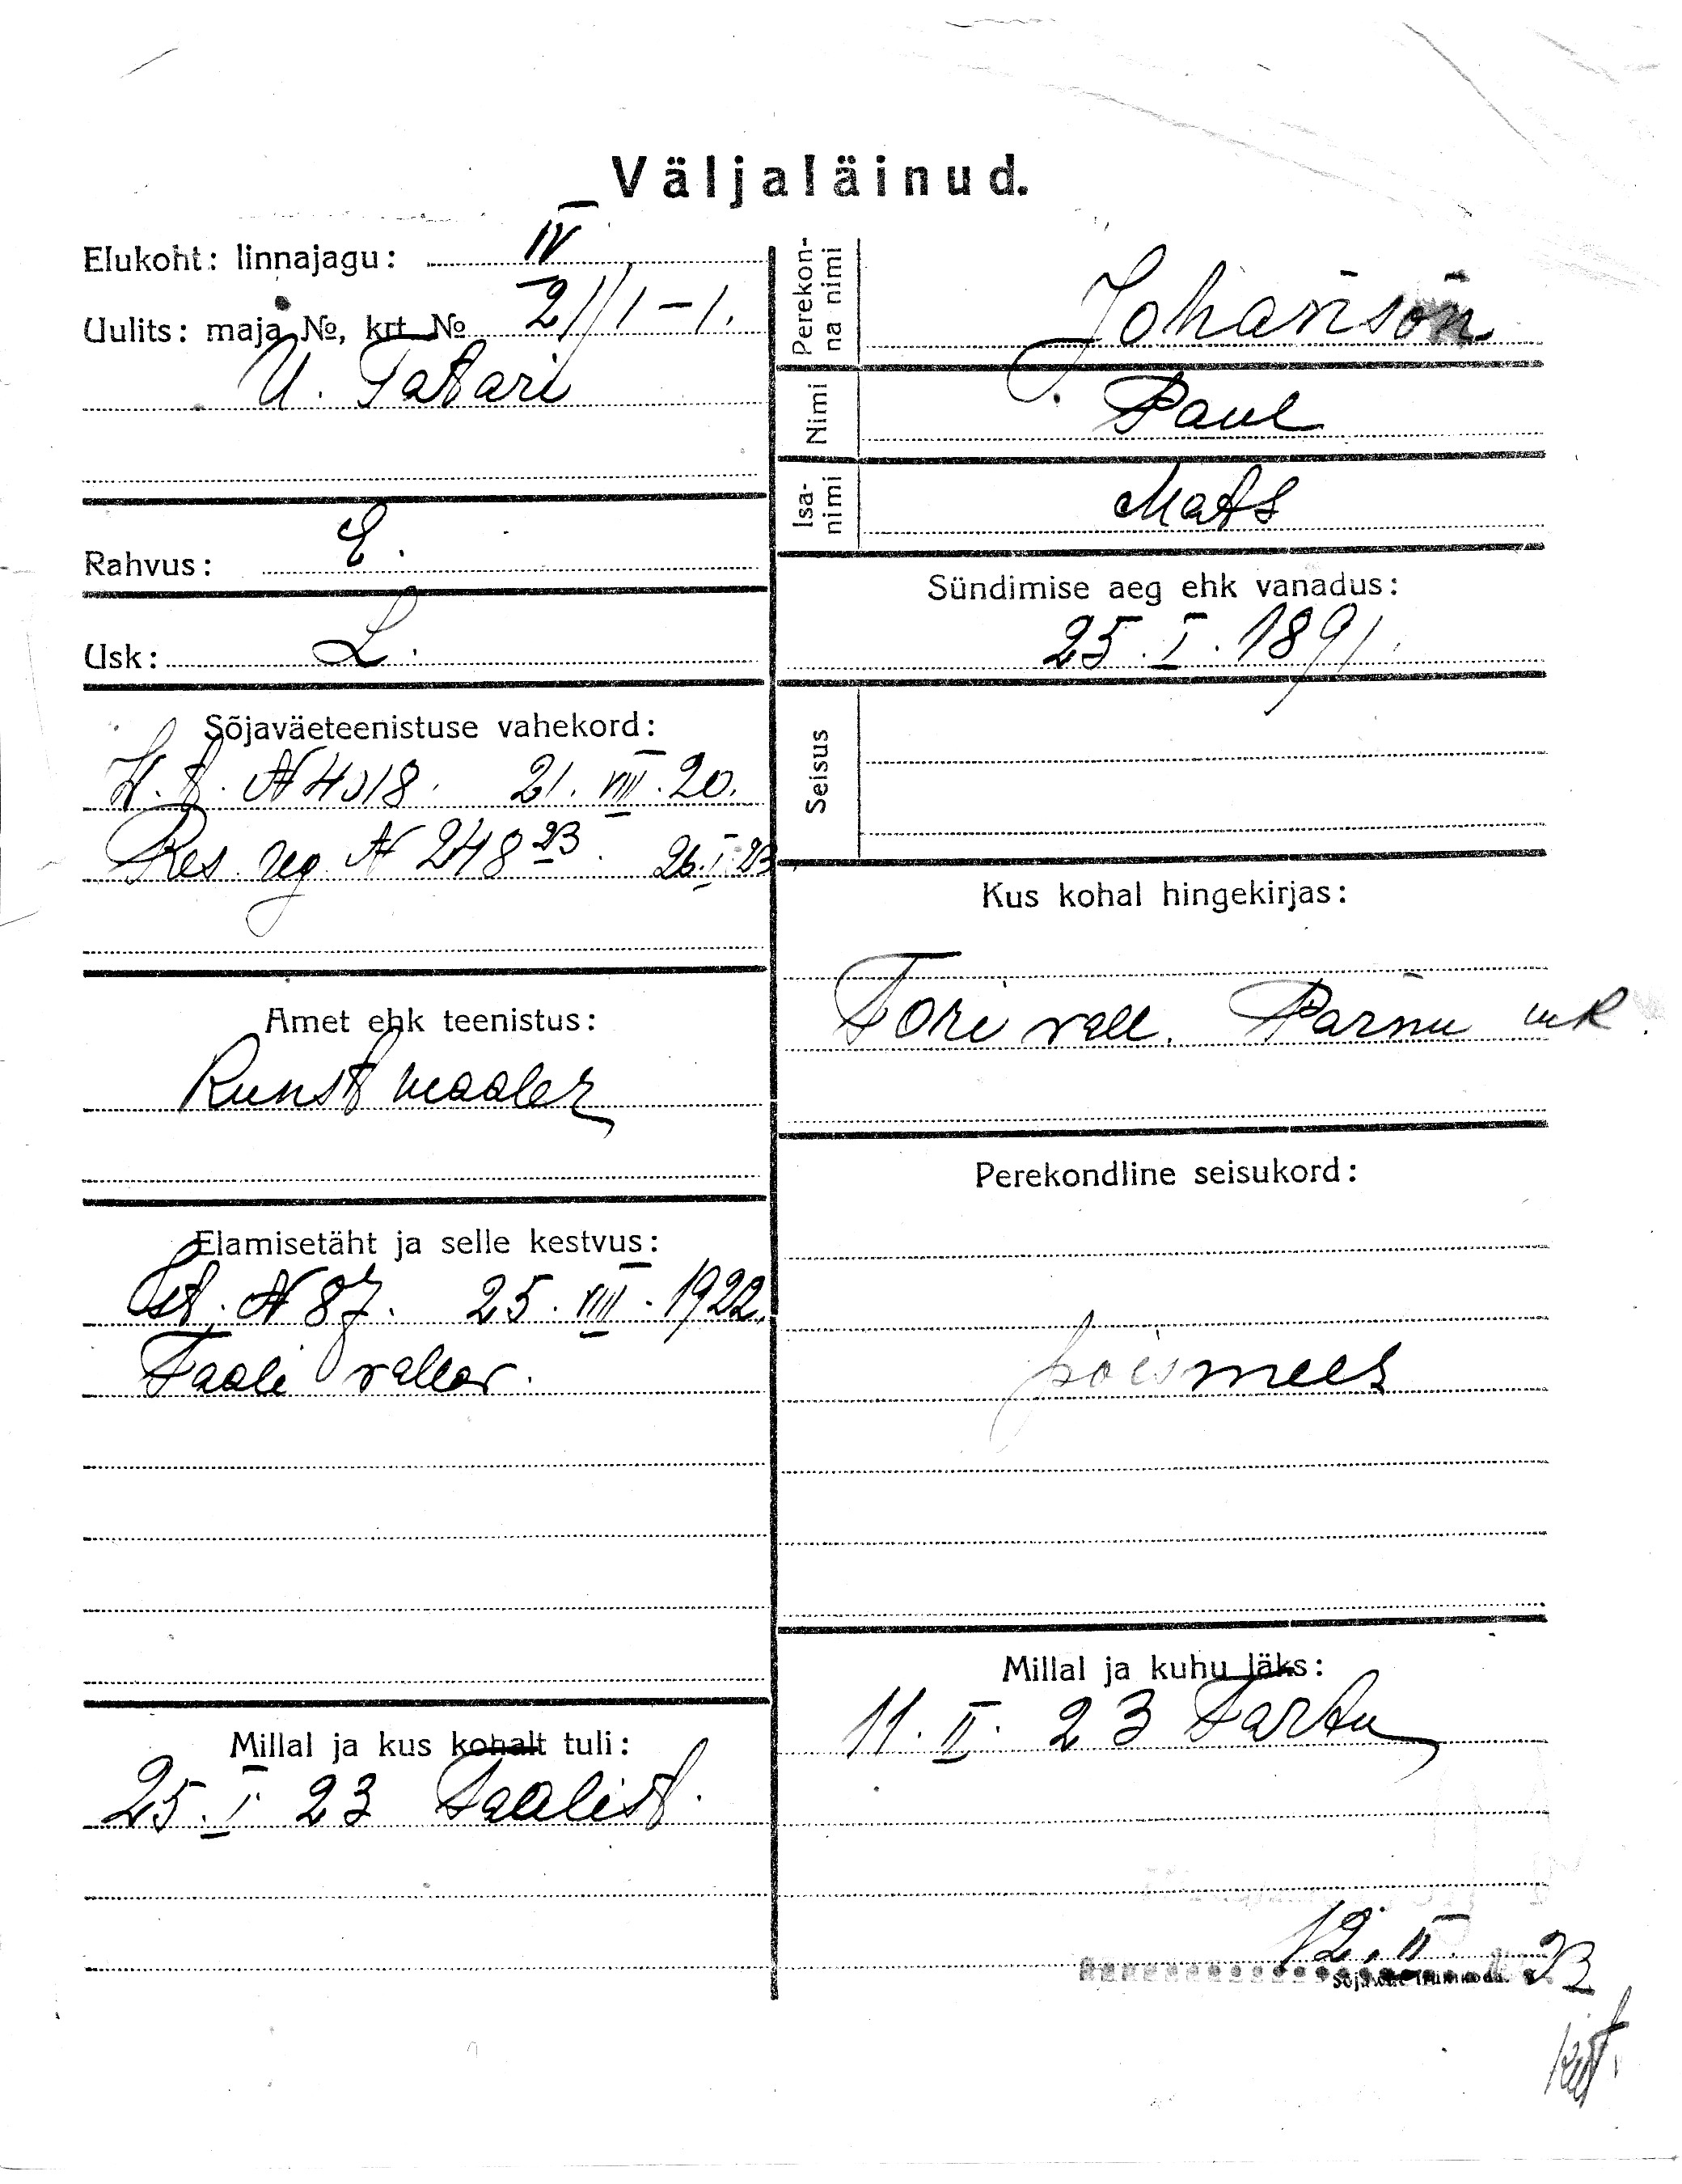 Väljaläinud.
Elukoht: linnajagu: IV
Uulits: maja №, krt № 21/1-1.
U. Tatari
Rahvus: E.
Usk: L.
Sõjaväeteenistuse vahekord:
N 4018. 21. VIII. 20.
Res. reg. N 248 23. 26. I. 23
Amet ehk teenistus:
Kunstmaaler
Elamisetäht ja selle kestvus:
N 87. 25. VIII. 1922.
Taali vallas.
Millal ja kus kohalt tuli:
25. I. 23 Taalist.
Perekonna nimi Johanson
Nimi Paul
Isanimi Mats
Sündimise aeg ehk vanadus:
25. I. 1891.
Seisus
Kus kohal hingekirjas:
Tori vall. Pärnu mk.
Perekondline seisukord:
poismees
Millal ja kuhu läks:
11. II. 23 Tartu
12. II. 23
Sõjawäe trükikoda.